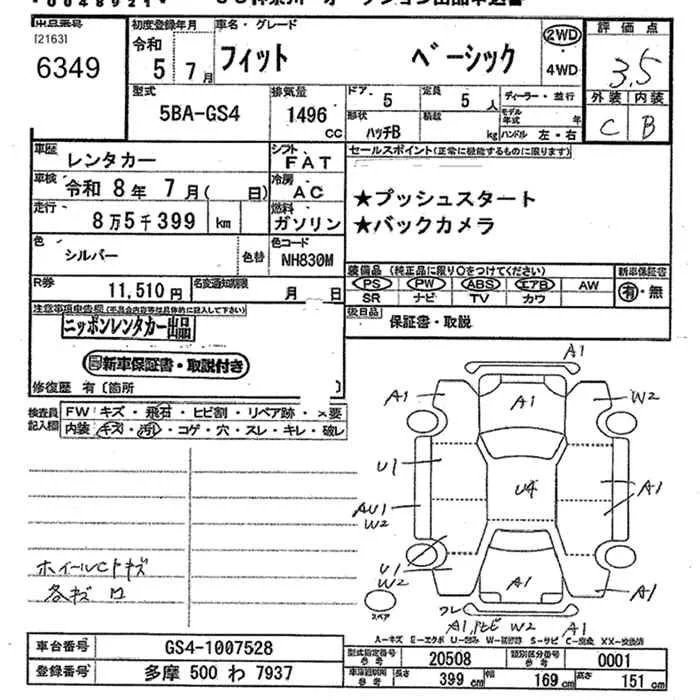 *0048921* USS神奈川 オークション出品申込書
出品番号 [2163] 6349
初度登録年月 令和 5 年 7月
車名・グレード フィット ベーシック
2WD ・ 4WD
評価点 3.5
外装 C 内装 B
型式 5BA-GS4
排気量 1496 CC
ドア 5 定員 5人
形状 ハッチB 積載 kg
ディーラー・並行
モデル年式 年
ハンドル 左・右
車歴 レンタカー
シフト FAT
セールスポイント(正常に機能するものに限ります)
車検 令和 8年 7月( 日)
冷房 AC
★プッシュスタート
走行 8万5千399 km
燃料 ガソリン
★バックカメラ
色 シルバー 色替
色コード NH830M
装備品 (純正品に限り○をつけてください)
PS PW ABS エアB AW
SR ナビ TV カワ
新車保証書 有・無
R券 11,510円
名変通知期限 月 日
後日品 保証書・取説
注意事項申告欄
ニッポンレンタカー出品
新車保証書・取説付き
修復歴 有〔箇所 〕
検査員記入欄
FW キズ・飛石・ヒビ割・リペア跡・×要
内装 キズ・汚・コゲ・穴・スレ・キレ・破レ
A1
A1
A1
W2
U1
U4
A1
AU1
W2
U1
W2
A1
A1
スペア
フレ
A1,トビ W2 A1
ホイールCトキズ
各キズ ロ
A-キズ E-エクボ U-凹み W-補修跡 S-サビ C-腐食 XX-交換済
車台番号 GS4-1007528
登録番号 多摩 500 わ 7937
型式指定番号 参考 20508
類別区分番号 参考 0001
車両諸元 参考 長さ 399 cm 幅 169 cm 高さ 151 cm